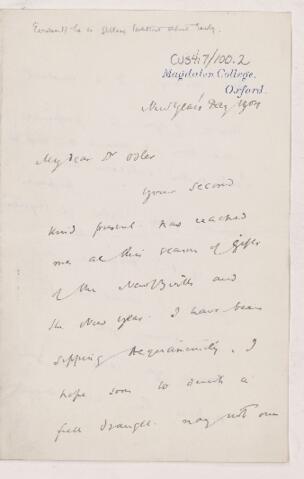 CUS417/100.2
Magdalen College,
Oxford.
New Year's Day 1904
My dear Dr Osler
Your second
kind present has reached
me at this season of gifts
of the New Births and
the New Year. I have been
sipping Aequanimitas, I
hope soon to drink a
full draught. May not one